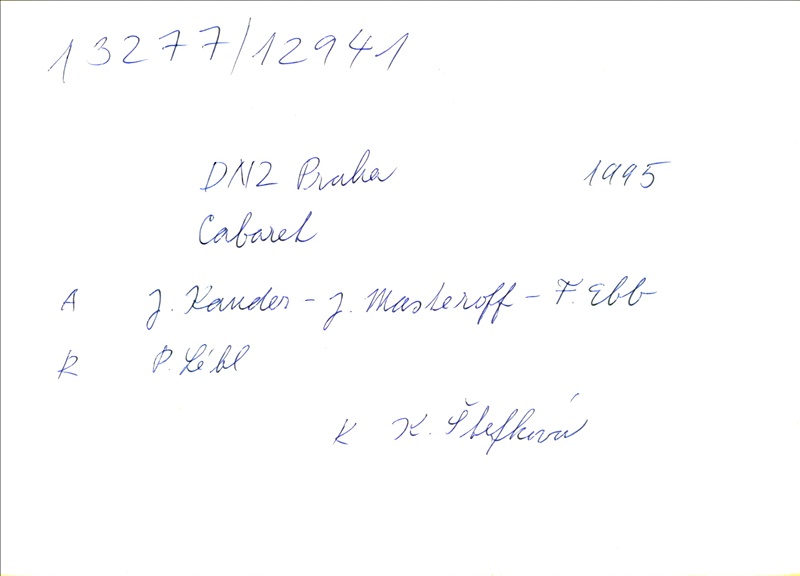 13277/12941
DNZ Praha 1995
Cabaret
A J. Kander - J. Masteroff - F. Ebb
R P. Lébl
K K. Štefková